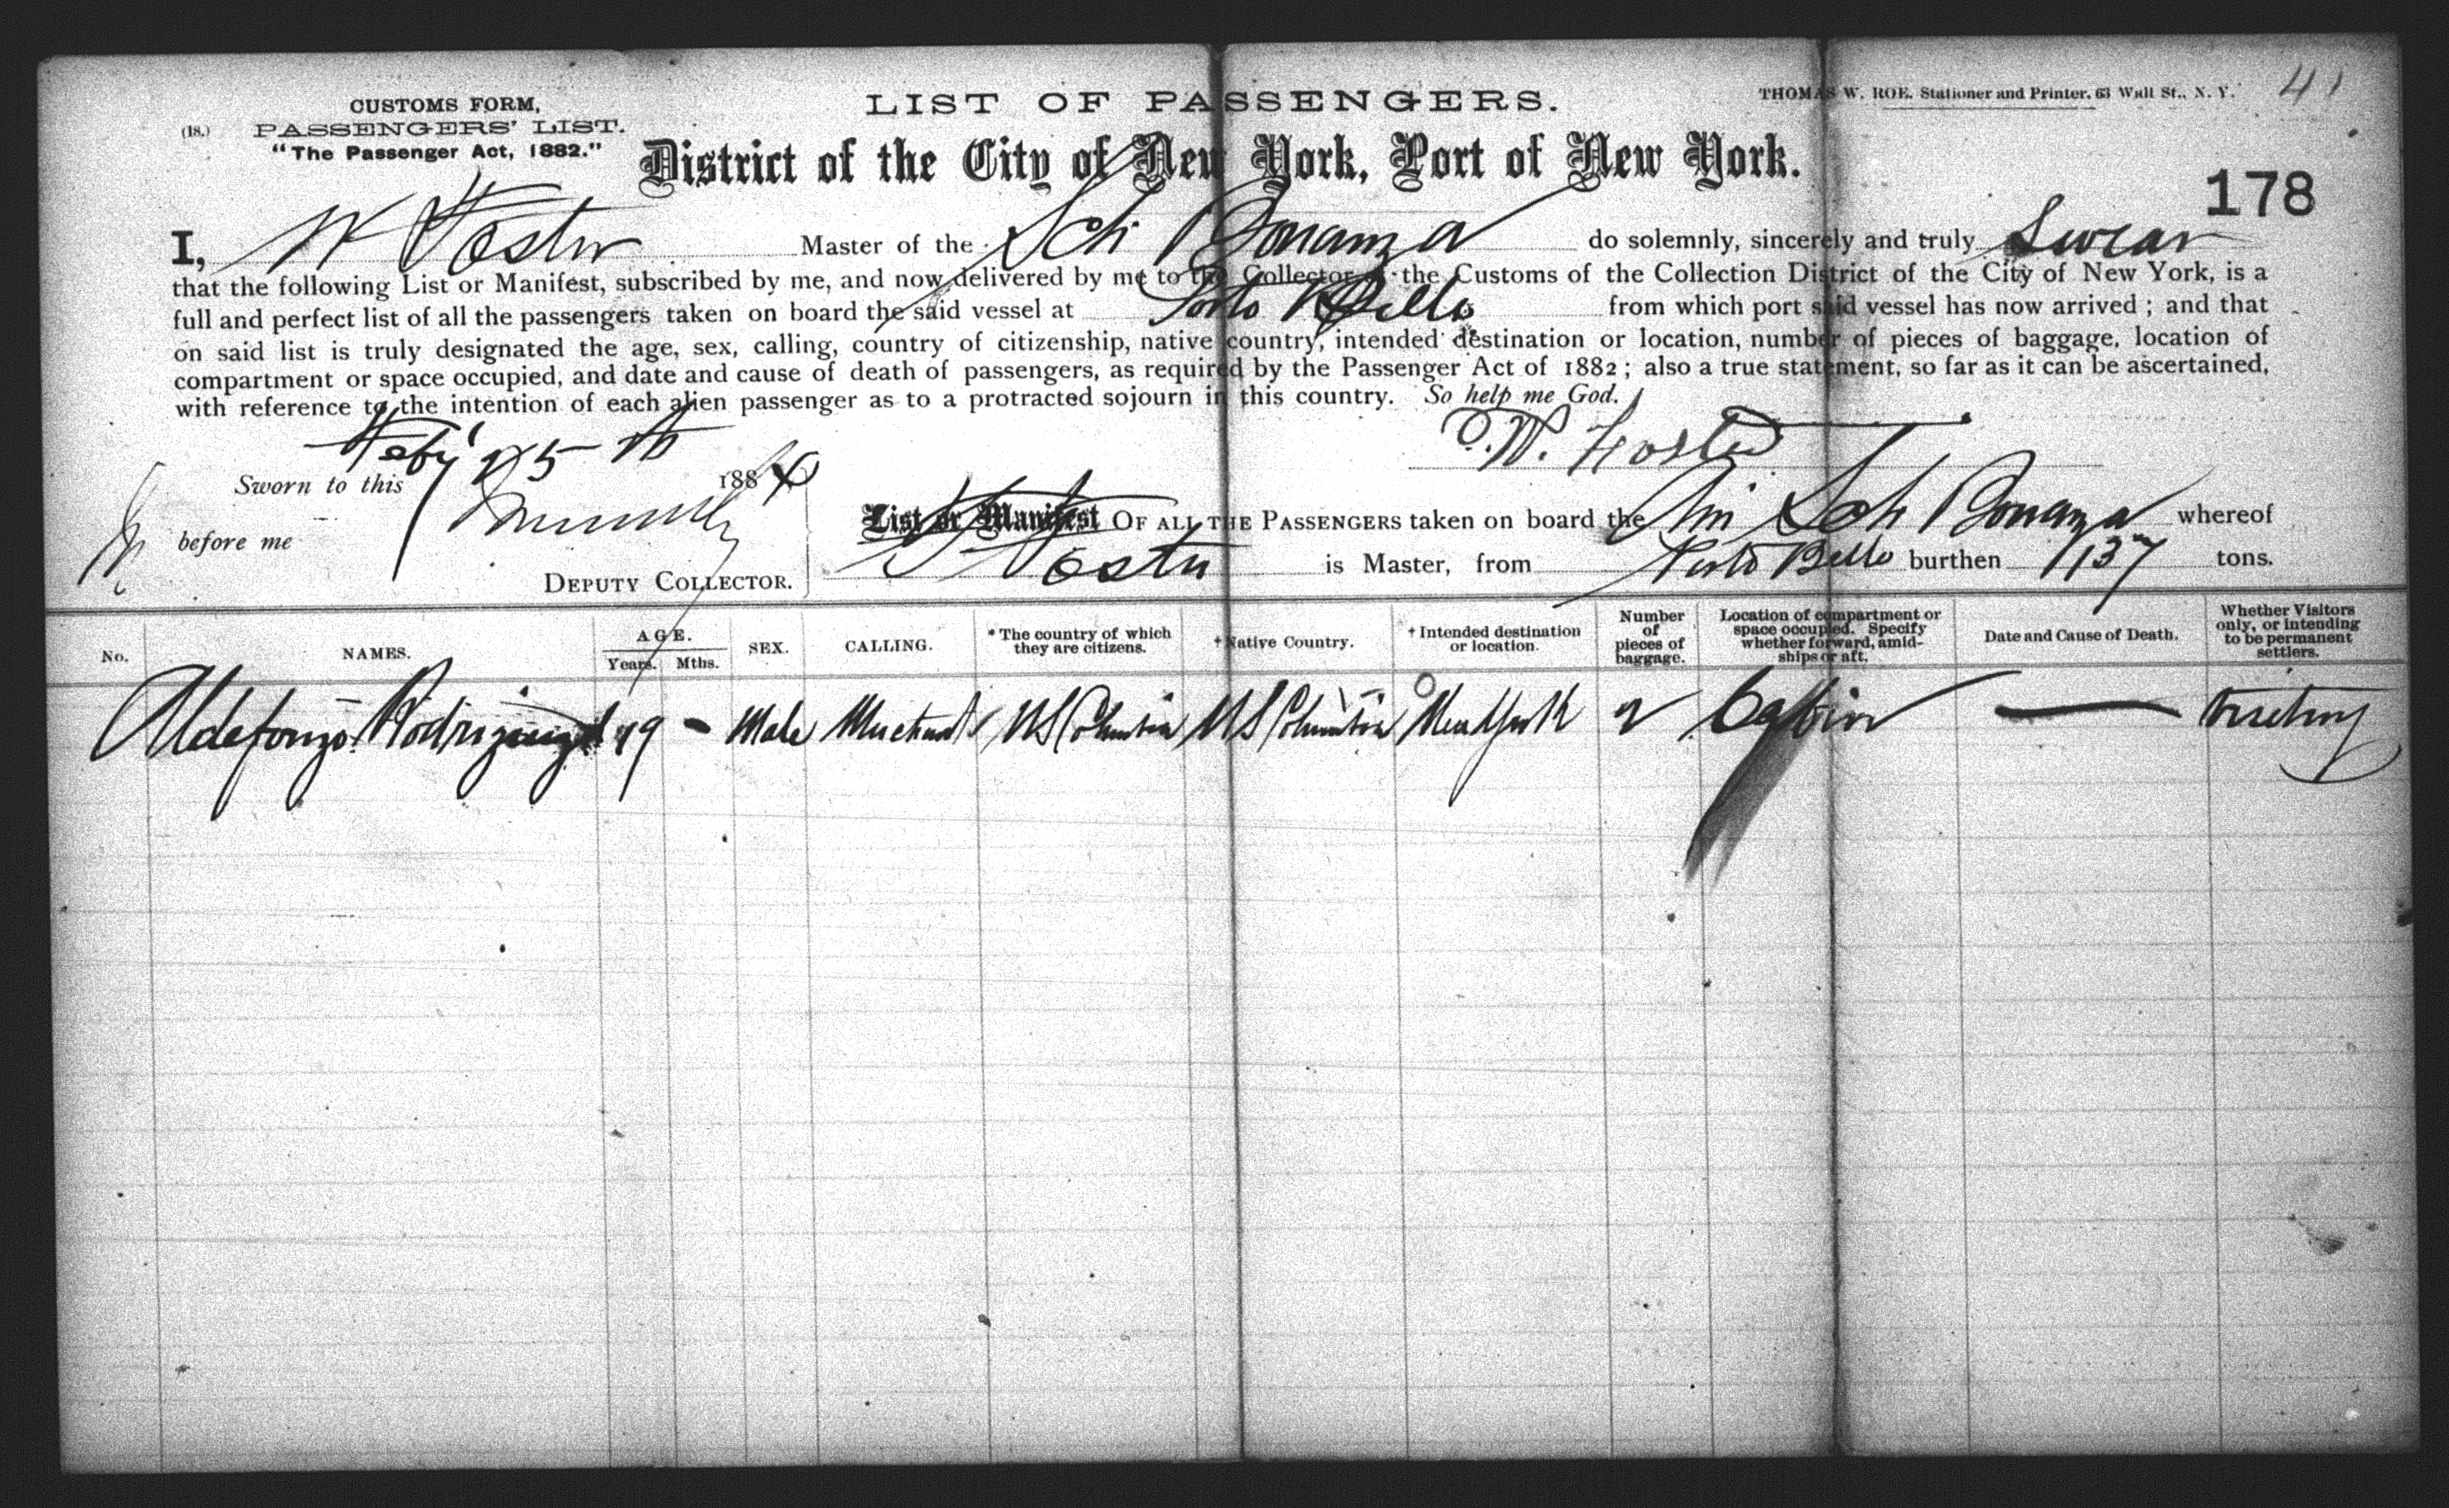 CUSTOMS FORM,
(18.) PASSENGERS' LIST.
"The Passenger Act, 1882."
LIST OF PASSENGERS.
THOMAS W. ROE. Stationer and Printer, 63 Wall St., N. Y. 41
District of the City of New York, Port of New York.
178
I, W Foster Master of the Sch Bonanza do solemnly, sincerely and truly Swear
that the following List or Manifest, subscribed by me, and now delivered by me to the Collector of the Customs of the Collection District of the City of New York, is a
full and perfect list of all the passengers taken on board the said vessel at Porto Bello from which port said vessel has now arrived; and that
on said list is truly designated the age, sex, calling, country of citizenship, native country, intended destination or location, number of pieces of baggage, location of
compartment or space occupied, and date and cause of death of passengers, as required by the Passenger Act of 1882; also a true statement, so far as it can be ascertained,
with reference to the intention of each alien passenger as to a protracted sojourn in this country. So help me God.
W. Foster
Sworn to this Feby 25th 1884
before me
DEPUTY COLLECTOR.
List or Manifest OF ALL THE PASSENGERS taken on board the Sch Bonanza whereof
Foster is Master, from Porto Bello burthen 137 tons.
No. NAMES. AGE. Years. Mths. SEX. CALLING. * The country of which they are citizens. † Native Country. † Intended destination or location. Number of pieces of baggage. Location of compartment or space occupied. Specify whether forward, amidships or aft. Date and Cause of Death. Whether Visitors only, or intending to be permanent settlers.
Aldefonzo Rodriguez 49 - Male Merchant US Columbia US Columbia New York 2 Cabin —